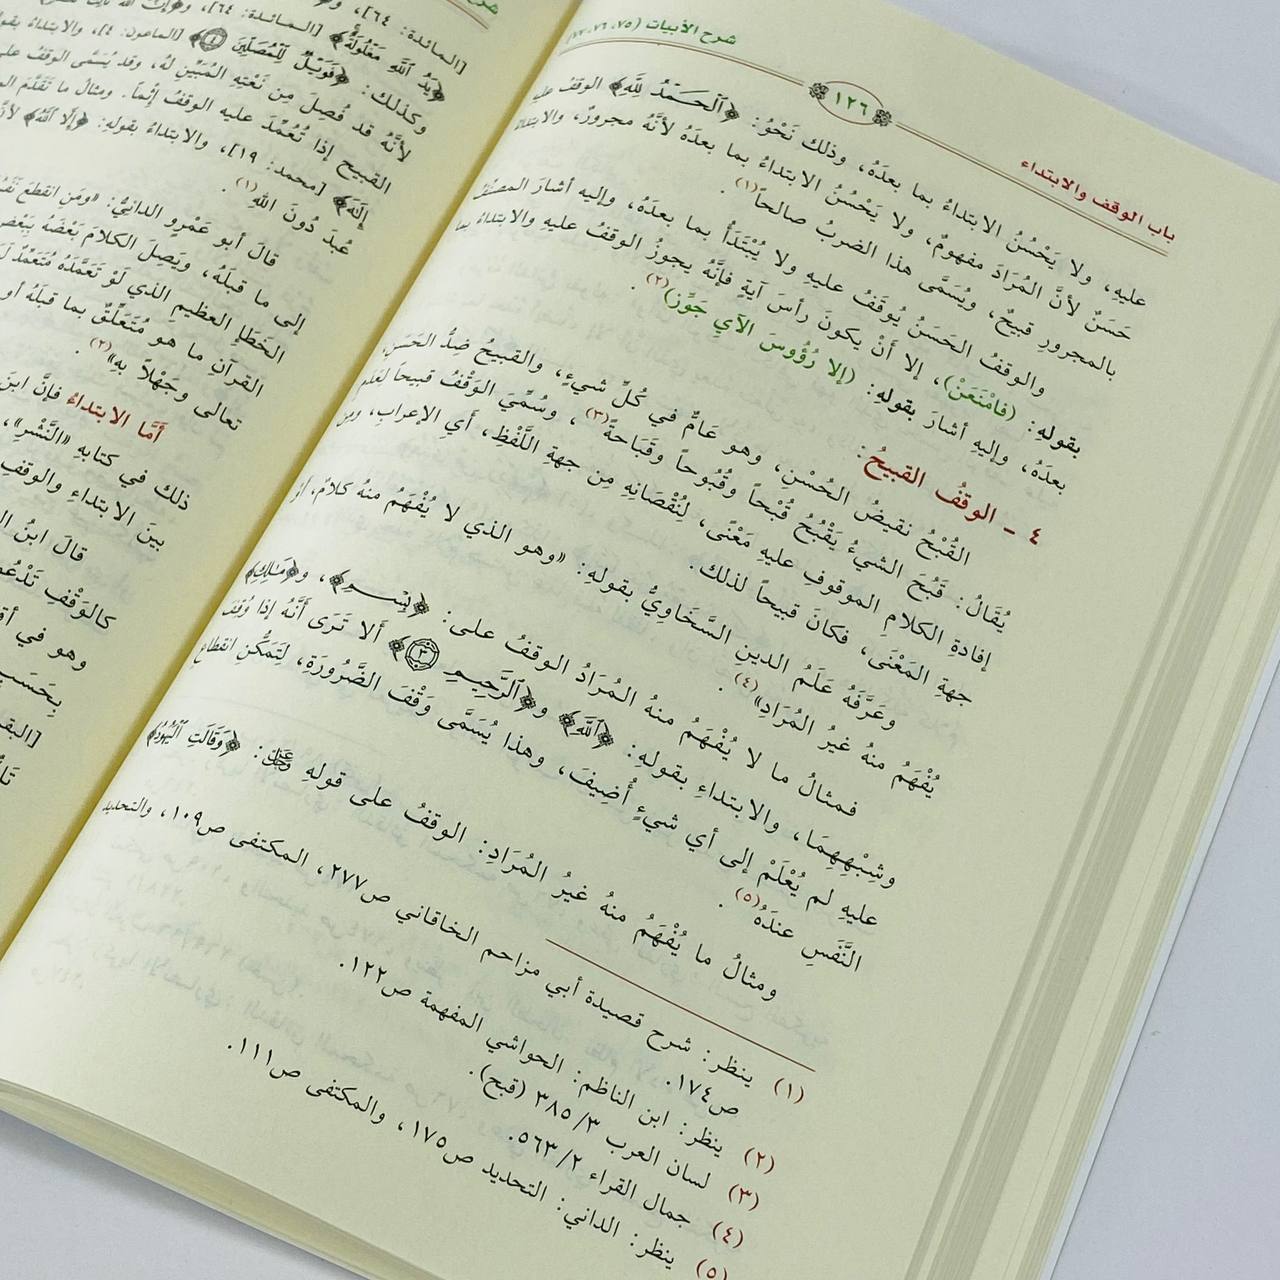 باب الوقف والابتداء
١٢٦
شرح الأبيات (٧٥، ٧٦، ٧٧)
عليهِ، ولا يَحْسُنُ الابتداءُ بما بعدَهُ، وذلك نَحْوُ: ﴿ٱلْحَمْدُ لِلَّهِ﴾ الوقفُ عليهِ
حَسَنٌ لأنَّ المُرَادَ مفهومٌ، ولا يَحْسُنُ الابتداءُ بما بعدَهُ لأنَّهُ مجرورٌ، والابتداءُ
بالمجرورِ قبيحٌ، ويُسَمَّى هذا الضربُ صالحاً(١).
والوقفُ الحَسَنُ يُوقَفُ عليهِ ولا يُبْتَدَأُ بما بعدَهُ، وإليهِ أشارَ المصنِّفُ
بقولهِ: (فامْنَعَنْ)، إلا أنْ يكونَ رأسَ آيةٍ فإنَّهُ يجوزُ الوقفُ عليهِ والابتداءُ بما
بعدَهُ، وإليهِ أشارَ بقولهِ: (إلا رُؤُوسَ الآيِ جَوِّز)(٢).
٤ ـ الوقفُ القبيحُ:
القُبْحُ نقيضُ الحُسْنِ، وهو عَامٌّ في كُلِّ شيءٍ، والقبيحُ ضِدُّ الحَسَنِ،
يُقَالُ: قَبُحَ الشيءُ يَقْبُحُ قُبْحاً وقُبُوحاً وقَبَاحةً(٣)، وسُمِّيَ الوَقْفُ قبيحاً لِعَدَمِ
إفادةِ الكلامِ الموقوفِ عليهِ مَعْنًى، لِنُقْصَانِهِ مِن جهةِ اللَّفْظِ، أي الإعرابِ، ومِن
جهةِ المَعْنَى، فكانَ قبيحاً لذلك.
وعَرَّفَهُ عَلَمُ الدينِ السَّخَاوِيُّ بقولهِ: «وهو الذي لا يُفْهَمُ منهُ كلامٌ، أوْ
يُفْهَمُ منهُ غيرُ المُرَادِ»(٤).
فمثالُ ما لا يُفْهَمُ منهُ المُرَادُ الوقفُ على: ﴿بِسْمِ﴾، و﴿مَٰلِكِ﴾
وشِبْهِهِمَا، والابتداءِ بقولهِ: ﴿ٱللَّهِ﴾ و﴿ٱلرَّحِيمِ ٣﴾ ألا تَرَى أنَّهُ إذا وُقِفَ
عليهِ لم يُعْلَمْ إلى أي شيءٍ أُضِيفَ، وهذا يُسَمَّى وَقْفَ الضَّرُورَةِ، لِتَمَكُّنِ انقطاعِ
النَّفَسِ عندَهُ(٥).
ومثالُ ما يُفْهَمُ منهُ غيرُ المُرَادِ: الوقفُ على قولهِ عَزَّ وَجَلَّ: ﴿وَقَالَتِ ٱلْيَهُودُ﴾
(١) ينظر: شرح قصيدة أبي مزاحم الخاقاني ص٢٧٧، المكتفى ص١٠٩، والتحديد
ص١٧٤.
(٢) ينظر: ابن الناظم: الحواشي المفهمة ص١٢٢.
(٣) لسان العرب ٣/ ٣٨٥ (قبح).
(٤) جمال القراء ٢/ ٥٦٣.
(٥) ينظر: الداني: التحديد ص١٧٥، والمكتفى ص١١١.
[المائدة: ٦٤]،
﴿يَدُ ٱللَّهِ مَغْلُولَةٌ﴾ [المائدة: ٦٤]،
وكذلك: ﴿فَوَيْلٌ لِّلْمُصَلِّينَ ٤﴾ [الماعون: ٤]، والابتداءُ
لأنَّهُ قد فُصِلَ مِن نَعْتِهِ المُبَيِّنِ لهُ، وقد يُسَمَّى الوقفُ
القبيح إذا تُعُمِّدَ عليه الوقفُ إثماً. ومثالُ ما تَقَدَّمَ
إِلَٰهَ﴾ [محمد: ١٩]، والابتداءُ بقولهِ: ﴿إِلَّا ٱللَّهُ﴾
عُبِدَ دُونَ اللهِ(١).
قالَ أبو عَمْرٍو الدانيُّ: «ومَن انقطعَ
إلى ما قبلَهُ، ويَصِلَ الكلامَ بَعْضَهُ
الخَطَإِ العظيمِ الذي لَوْ تَعَمَّدَهُ مُتَعَمِّدٌ
القرآنِ ما هو مُتَعَلِّقٌ بما قبلَهُ أو
تعالى وجَهْلاً بهِ»(٢).
أمَّا الابتداءُ فإنَّ ابنَ
ذلك في كتابهِ «النَّشْرِ»،
بينَ الابتداءِ والوقفِ
قالَ ابنُ
كالوَقْفِ
وهو في